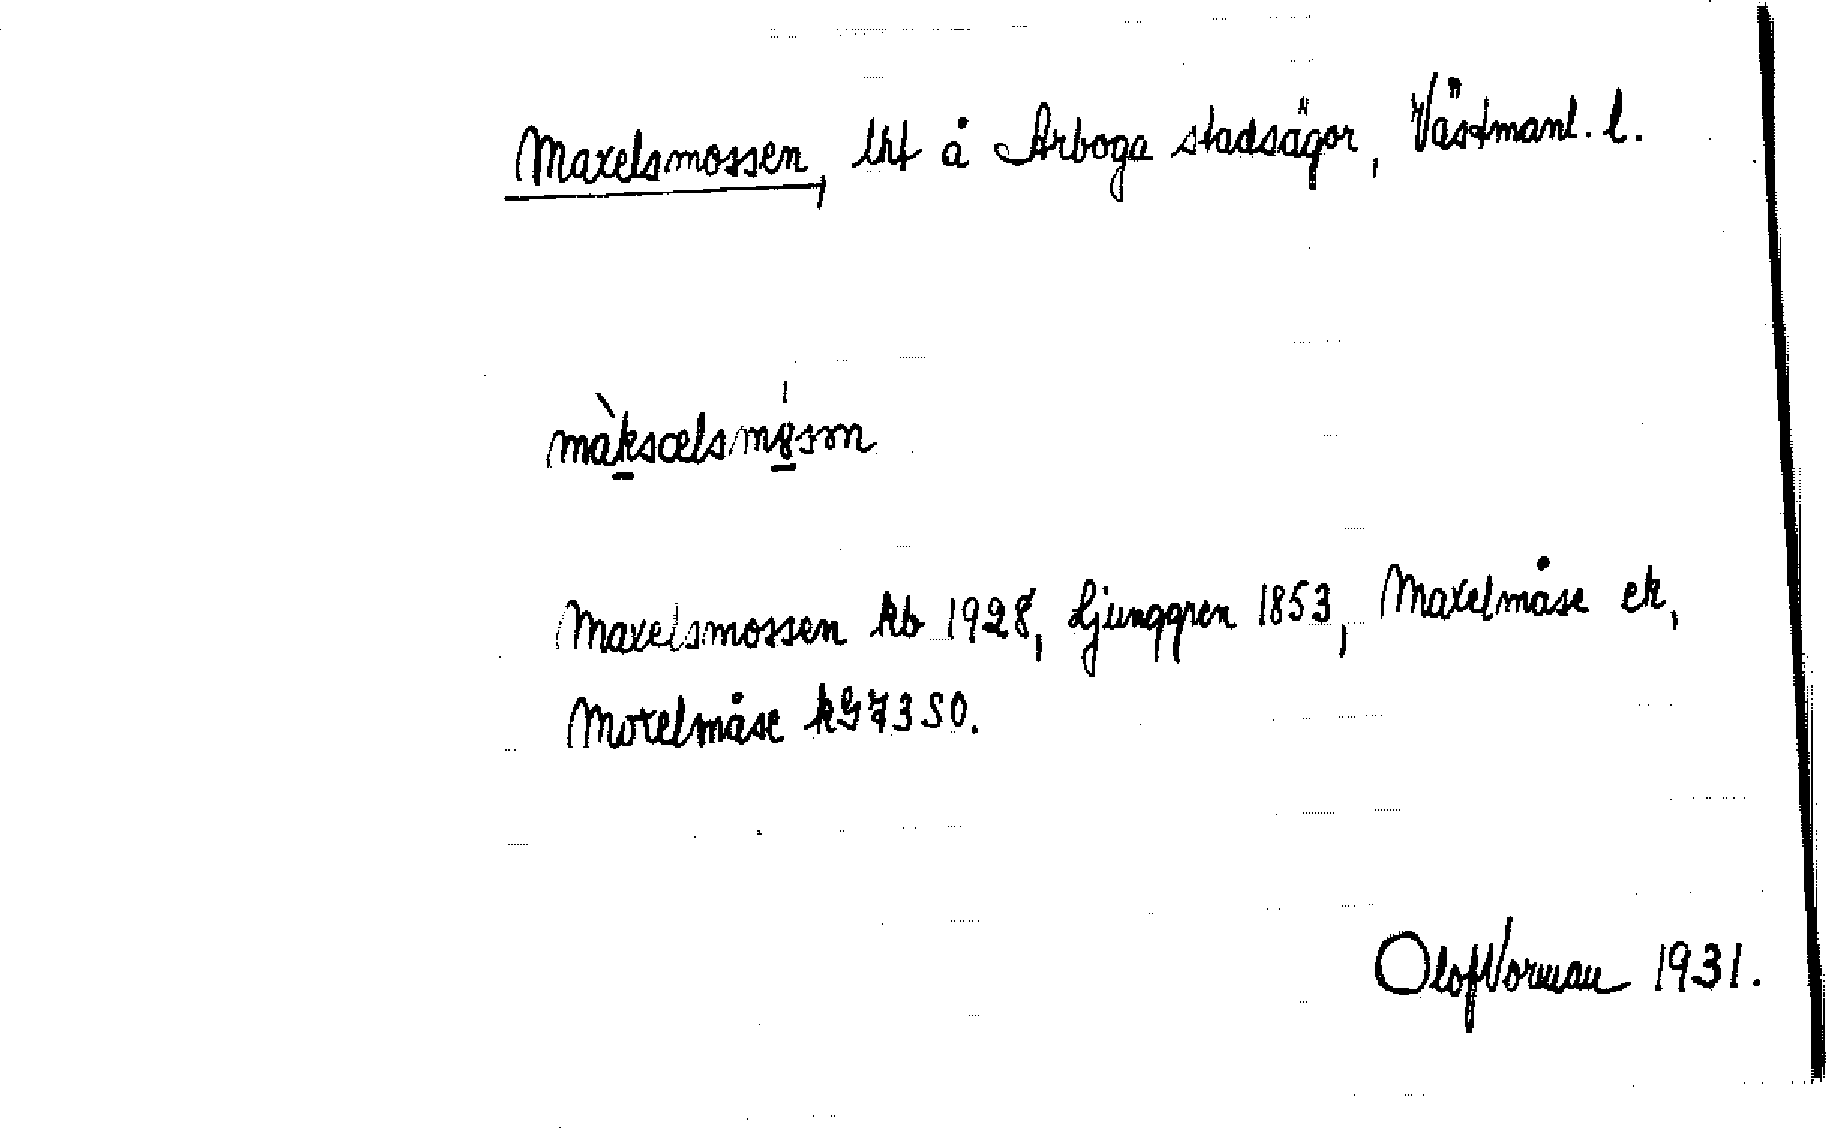 Maxelsmossen, lht å Arboga stadsägor, Västmanl. l.
màksœlsmó̱sm
Maxelsmossen kb 1928, Ljunggren 1853, Maxelmåse ek,
Moxelmåse kG73SO.
Olof Vorman 1931.